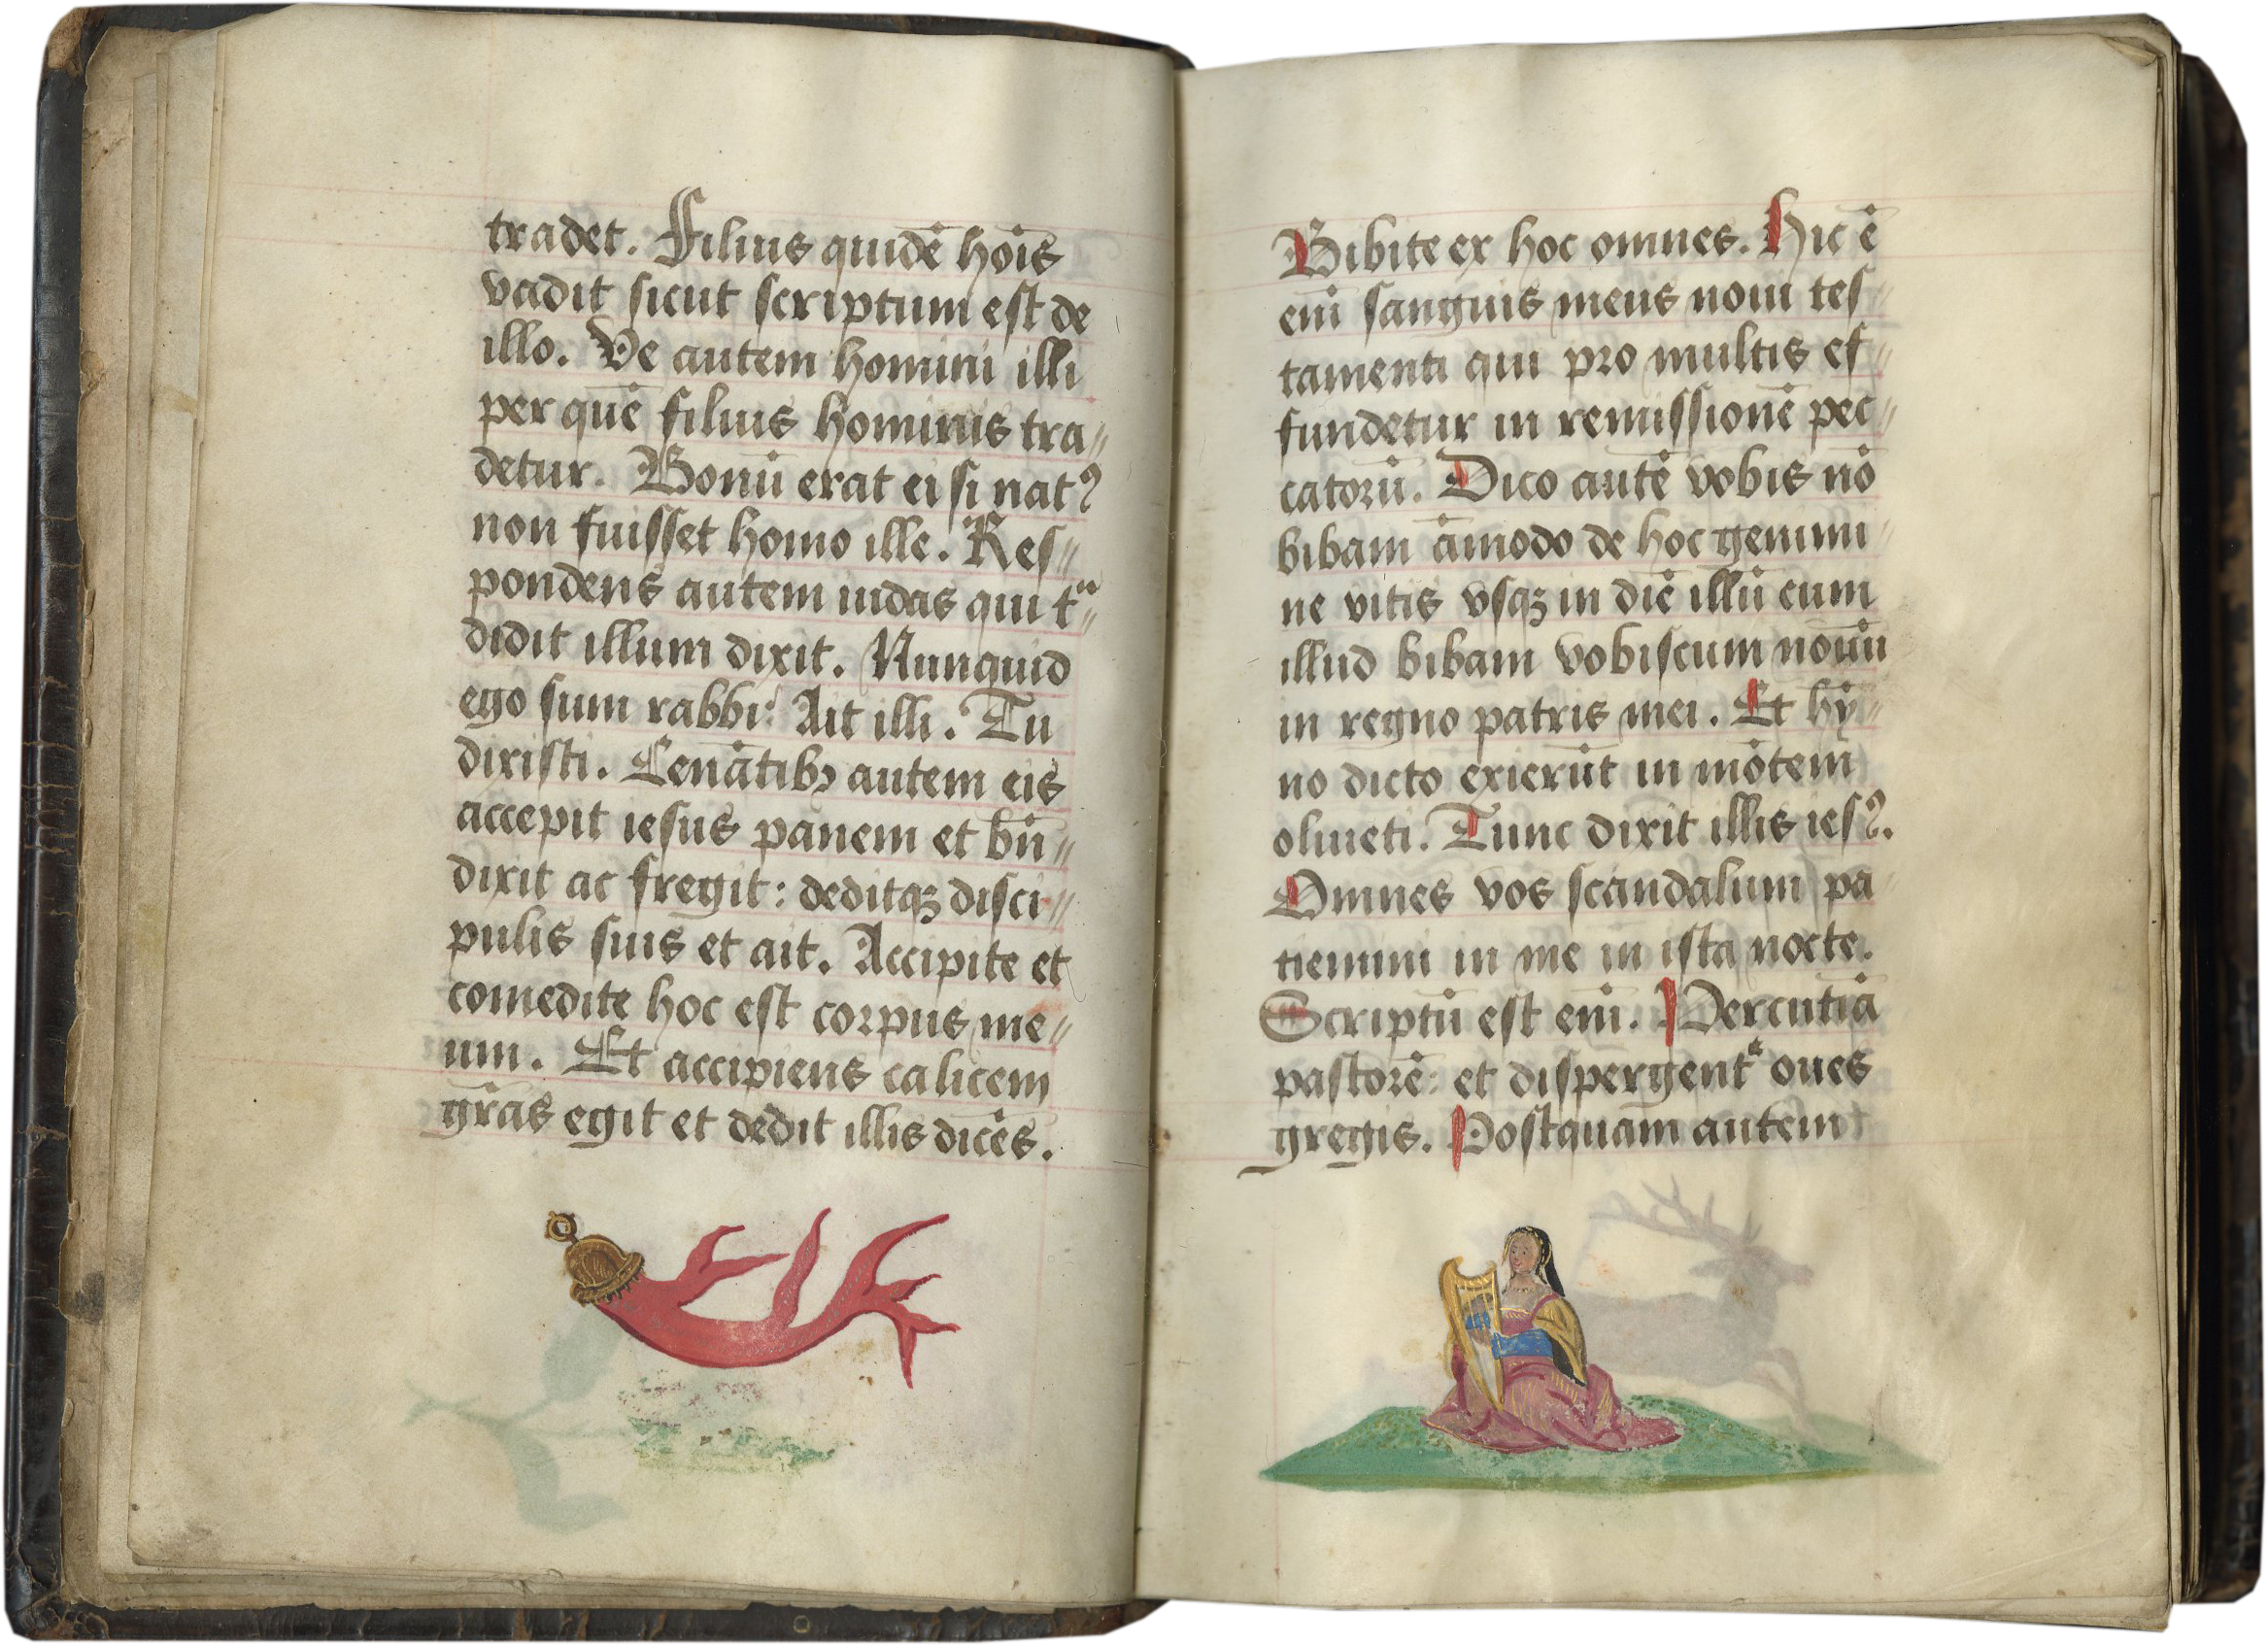 tradet. Filius quidē hoīs
vadit sicut scriptum est de
illo. Ve autem homini illi
per quē filius hominis tra⸗
detur. Bonū erat ei si natꝰ
non fuisset homo ille. Res⸗
pondens autem iudas qui tᵃ⸗
didit illum dixit. Nunquid
ego sum rabbi? Ait illi. Tu
dixisti. Cenātibꝫ autem eis
accepit iesus panem et bn̄⸗
dixit ac fregit: deditqꝫ disci⸗
pulis suis et ait. Accipite et
comedite hoc est corpus me⸗
um. Et accipiens calicem
gr̄as egit et dedit illis dicēs.
Bibite ex hoc omnes. Hic ē
eni̅ sanguis meus noui tes⸗
tamenti qui pro multis ef⸗
fundetur in remissionē pec⸗
catorū. Dico autē vobis nō
bibam āmodo de hoc genimi⸗
ne vitis vsqꝫ in diē illū cum
illud bibam vobiscum nouū
in regno patris mei. Et hy̅⸗
no dicto exierūt in mōtem
oliueti. Tunc dixit illis iesꝰ.
Omnes vos scandalum pa⸗
tiemini in me in ista nocte.
Scriptū est eni̅. Percutiā
pastorē: et dispergentᷣ oues
gregis. Postquam autem